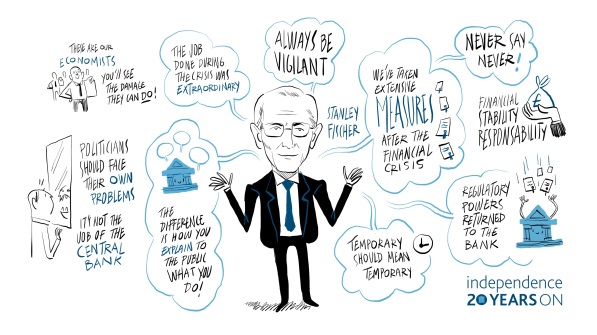 THESE ARE OUR
ECONOMISTS
YOU'LL SEE
THE DAMAGE
THEY CAN DO!
THE JOB
DONE DURING
THE CRISIS WAS
EXTRAORDINARY
ALWAYS BE
VIGILANT
WE'VE TAKEN
EXTENSIVE
MEASURES
AFTER THE
FINANCIAL
CRISIS
NEVER SAY
NEVER!
STANLEY
FISCHER
£
FINANCIAL
STABILITY
RESPONSABILITY
POLITICIANS
SHOULD FACE
THEIR OWN
PROBLEMS
IT'S NOT THE
JOB OF THE
CENTRAL
BANK
THE
DIFFERENCE
IS HOW YOU
EXPLAIN TO
THE PUBLIC
WHAT YOU
DO!
TEMPORARY
SHOULD MEAN
TEMPORARY
REGULATORY
POWERS
RETURNED
TO THE
BANK
independence
20 YEARS ON